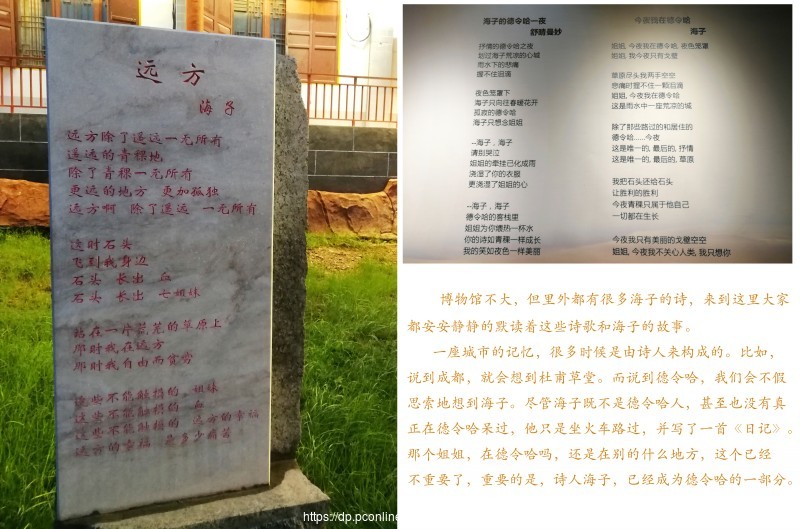 远 方
海子
远方除了遥远一无所有
遥远的青稞地
除了青稞一无所有
更远的地方 更加孤独
远方啊 除了遥远 一无所有
这时石头
飞到我身边
石头 长出 血
石头 长出 七姐妹
站在一片荒芜的草原上
那时我在远方
那时我自由而贫穷
这些不能触摸的 姐妹
这些不能触摸的 血
这些不能触摸的 远方的幸福
远方的幸福 是多少痛苦
海子的德令哈一夜
舒晴曼妙
抒情的德令哈之夜
划过海子荒凉的心城
雨水下的悲痛
握不住泪滴
夜色笼罩下
海子只向往春暖花开
孤寂的德令哈
海子只想念姐姐
--海子，海子
请别哭泣
姐姐的牵挂已化成雨
浇湿了你的衣服
更浇湿了姐姐的心
--海子，海子
德令哈的客栈里
姐姐为你煨热一杯水
你的诗如青稞一样成长
我的笑如夜色一样美丽
今夜我在德令哈
海子
姐姐, 今夜我在德令哈, 夜色笼罩
姐姐, 我今夜只有戈壁
草原尽头我两手空空
悲痛时握不住一颗泪滴
姐姐, 今夜我在德令哈
这是雨水中一座荒凉的城
除了那些路过的和居住的
德令哈......今夜
这是唯一的, 最后的, 抒情
这是唯一的, 最后的, 草原
我把石头还给石头
让胜利的胜利
今夜青稞只属于他自己
一切都在生长
今夜我只有美丽的戈壁空空
姐姐, 今夜我不关心人类, 我只想你
博物馆不大，但里外都有很多海子的诗，来到这里大家
都安安静静的默读着这些诗歌和海子的故事。
一座城市的记忆，很多时候是由诗人来构成的。比如，
说到成都，就会想到杜甫草堂。而说到德令哈，我们会不假
思索地想到海子。尽管海子既不是德令哈人，甚至也没有真
正在德令哈呆过，他只是坐火车路过，并写了一首《日记》。
那个姐姐，在德令哈吗，还是在别的什么地方，这个已经
不重要了，重要的是，诗人海子，已经成为德令哈的一部分。
https://dp.pconline